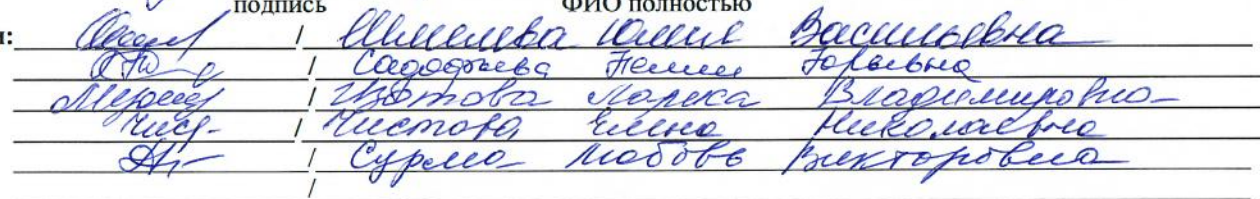 подпись ФИО полностью
/ Шмелева Юлия Васильевна
/ Юрьевна
/ Изотова Лариса Владимировна
Чист- / Чистова Елена Николаевна
/ Сурма Любовь Викторовна
/